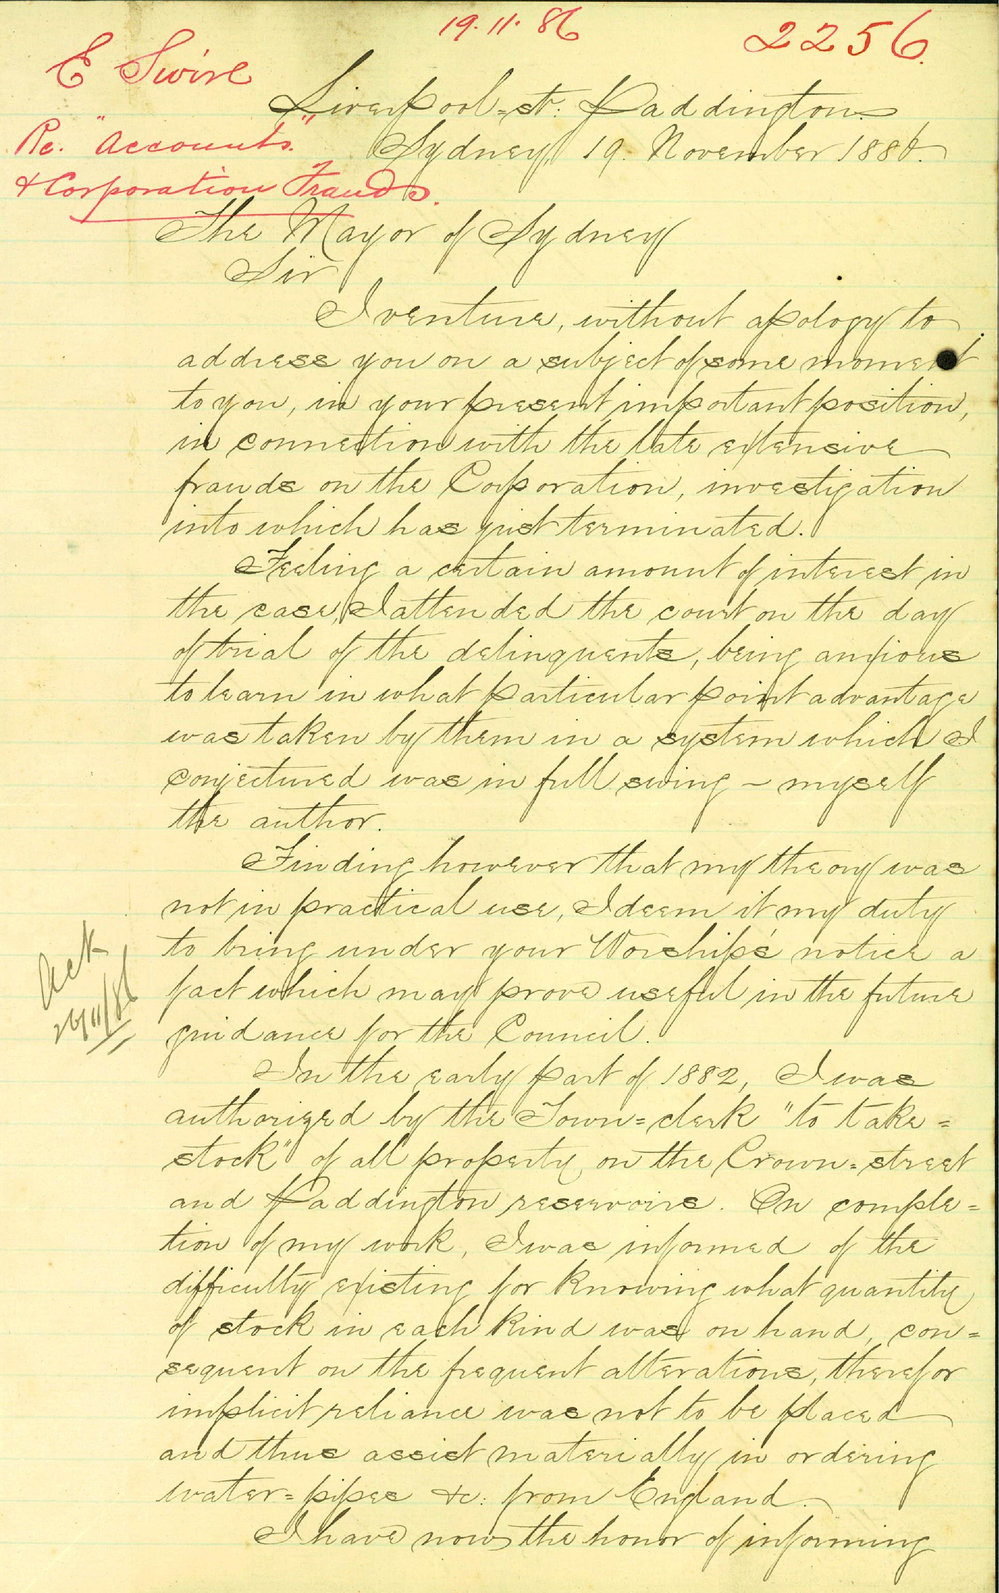 19.11.86
2256
E Swire
Re. "Accounts."
& Corporation Frauds.
Liverpool=st: Paddington
Sydney, 19. November 1886.
The Mayor of Sydney
Sir
I venture, without apology to
address you on a subject of some moment
to you, in your present important position,
in connection with the late extensive
frauds on the Corporation, investigation
into which has just terminated.
Feeling a certain amount of interest in
the case, I attended the court on the day
of trial of the delinquents, being anxious
to learn in what particular point advantage
was taken by them in a system which I
conjectured was in full swing – myself
the author.
Finding however that my theory was
not in practical use, I deem it my duty
to bring under your Worship's notice a
fact which may prove useful in the future
guidance for the Council.
Ack
26/11/86
In the early part of 1882, I was
authorized by the Town=clerk "to take=
stock" of all property on the Crown=street
and Paddington reservoirs. On comple=
tion of my work, I was informed of the
difficulty existing for knowing what quantity
of stock in each kind was on hand, con=
sequent on the frequent alterations, therefor
implicit reliance was not to be placed
and thus assist materially in ordering
water=pipes &c: from England.
I have now the honor of informing